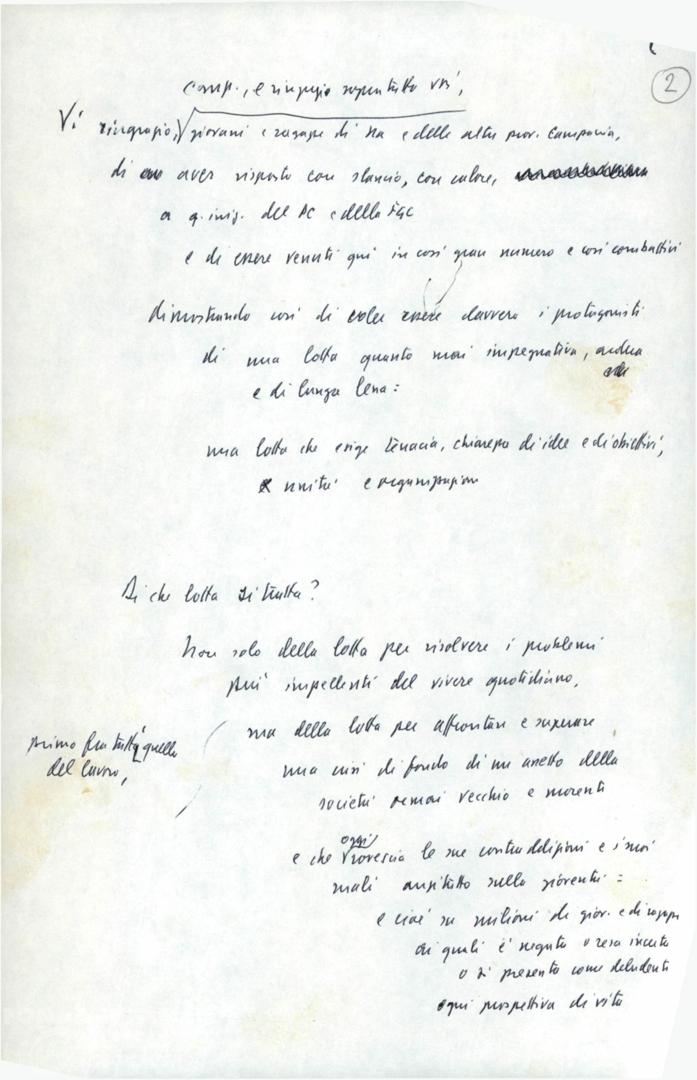 2
comp., e ringrazio soprattutto voi,
Vi ringrazio, giovani e ragazze di Na e delle altre prov. Campania,
di aver risposto con slancio, con calore,
a q. iniz. del PC e della FGC
e di essere venuti qui in così gran numero e così combattivi
dimostrando così di voler essere davvero i protagonisti
di una lotta quanto mai impegnativa, ardua
e di lunga lena:
una lotta che esige tenacia, chiarezza di idee e di obiettivi,
unità e organizzazione
Di che lotta si tratta?
Non solo della lotta per risolvere i problemi
più impellenti del vivere quotidiano,
primo fra tutti quello
del lavoro,
ma della lotta per affrontare e superare
una crisi di fondo di un assetto della
società ormai vecchio e morente
oggi
e che rovescia le sue contraddizioni e i suoi
mali anzitutto sulla gioventù:
e cioè su milioni di giov. e di ragazze
ai quali è negata o resa incerta
o si presenta come deludente
ogni prospettiva di vita